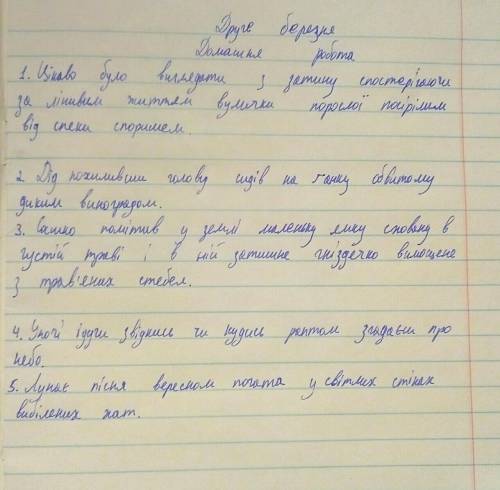 Друге березня
Домашня робота
1. Цікаво було виглядати з затину спостерігаючи
за лінивим життям вулички порослої посірілим
від спеки споришем.
2. Дід похиливши голову сидів на ганку обвитому
диким виноградом.
3. Сашко помітив у землі маленьку ямку сховану в
густій траві і в ній затишне гніздечко вимощене
з трав'яних стебел.
4. Уночі ідучи звідкись чи кудись раптом згадати про
небо.
5. Лунає пісня вересном почата у світлих стінах
вибілених хат.